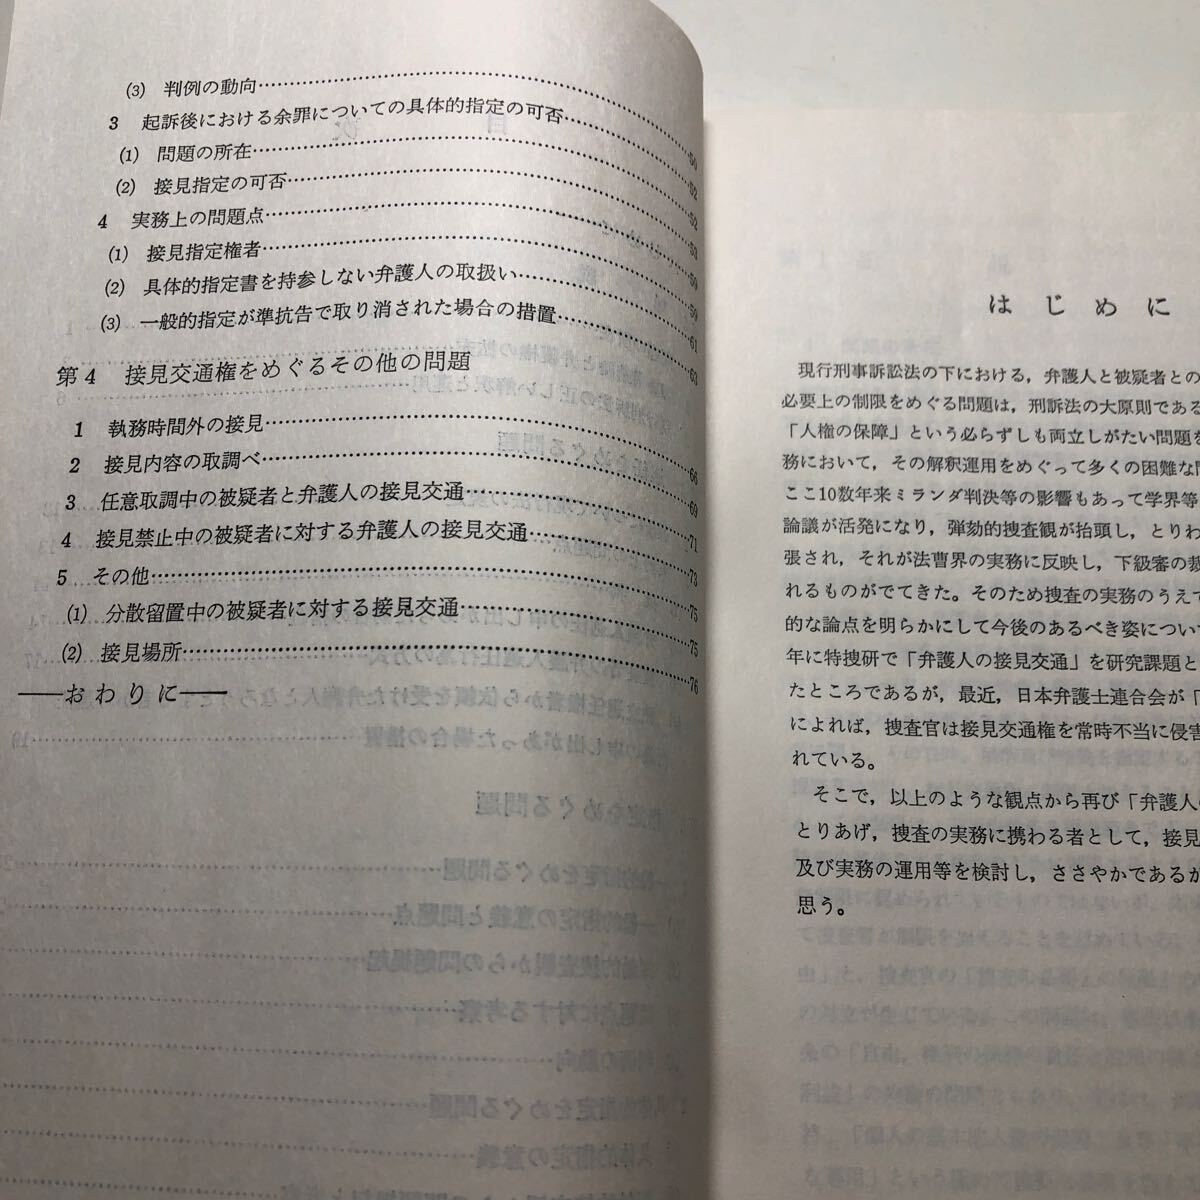 (3) 判例の動向……50
3 起訴後における余罪についての具体的指定の可否……52
(1) 問題の所在……52
(2) 接見指定の可否……53
4 実務上の問題点……59
(1) 接見指定権者……59
(2) 具体的指定書を持参しない弁護人の取扱い……61
(3) 一般的指定が準抗告で取り消された場合の措置……63
第4 接見交通権をめぐるその他の問題
1 執務時間外の接見……66
2 接見内容の取調べ……69
3 任意取調中の被疑者と弁護人の接見交通……71
4 接見禁止中の被疑者に対する弁護人の接見交通……73
5 その他……75
(1) 分散留置中の被疑者に対する接見交通……75
(2) 接見場所……76
――おわりに――
はじめに
現行刑事訴訟法の下における，弁護人と被疑者との
必要上の制限をめぐる問題は，刑訴法の大原則である
「人権の保障」という必らずしも両立しがたい問題を
務において，その解釈運用をめぐって多くの困難な問
ここ10数年来ミランダ判決等の影響もあって学界等
論議が活発になり，弾劾的捜査観が抬頭し，とりわ
張され，それが法曹界の実務に反映し，下級審の裁
れるものがでてきた。そのため捜査の実務のうえで
的な論点を明らかにして今後のあるべき姿につい
年に特捜研で「弁護人の接見交通」を研究課題と
たところであるが，最近，日本弁護士連合会が「
によれば，捜査官は接見交通権を常時不当に侵害
れている。
そこで，以上のような観点から再び「弁護人の
とりあげ，捜査の実務に携わる者として，接見
及び実務の運用等を検討し，ささやかであるが
思う。